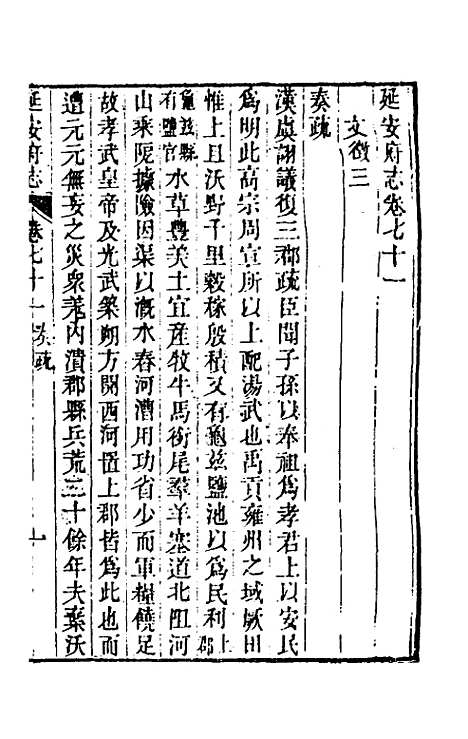 延安府志卷七十一
文徵三
奏疏
漢虞詡議復三郡疏臣聞子孫以奉祖爲孝君上以安民
爲明此高宗周宣所以上配湯武也禹貢雍州之域厥田
惟上且沃野千里穀稼殷積又有龜玆鹽池以爲民利上郡
龜玆縣有鹽官水草豐美土宜產牧牛馬銜尾羣羊塞道北阻河
山乘阨據險因渠以漑水舂河漕用功省少而軍糧饒足
故孝武皇帝及光武築朔方開西河置上郡皆爲此也而
遭元元無妄之災衆羌內潰郡縣兵荒二十餘年夫棄沃
延安府志 卷七十一 奏疏 一